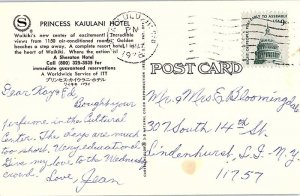 PRINCESS KAIULANI HOTEL
Waikiki's new center of excitement! Incredible
views from 1150 air-conditioned rooms. Golden
beaches a step away. A complete resort hotel in the
heart of Waikiki. What a wonderful world!
A Sheraton Hotel
Call (808) 325-3535 for
immediate guaranteed reservations
A Worldwide Service of ITT
プリンセス・カイウラニ・ホテル
HONOLULU
PM
1978
POST CARD
Dear Ray & Flo
Bought your
perfume in the Cultural
Center. The days are much
too short. Very educational.
Give my love to the Wednesday
crowd. Love, Jean
Mr. & Mrs E Bloomingdale
207 South 14th St.
Lindenhurst, L.I. N.Y.
11757